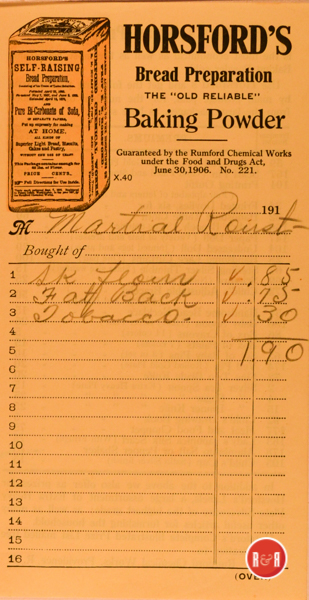 HORSFORD'S
SELF-RAISING
Bread Preparation,
Pure Bi-Carbonate of Soda,
AT HOME,
Superior Light Bread, Biscuits,
Cakes and Pastry,
PRICE CENTS.
HORSFORD'S
Bread Preparation
THE "OLD RELIABLE"
Baking Powder
Guaranteed by the Rumford Chemical Works
under the Food and Drugs Act,
June 30, 1906. No. 221.
X.40
191
M Martial
Bought of
1 Sk Flour √ .85
2 Fat Back √ .75
3 Tobacco √ 30
4
5 1.90
6
7
8
9
10
11
12
13
14
15
16
(OVER)
R&R